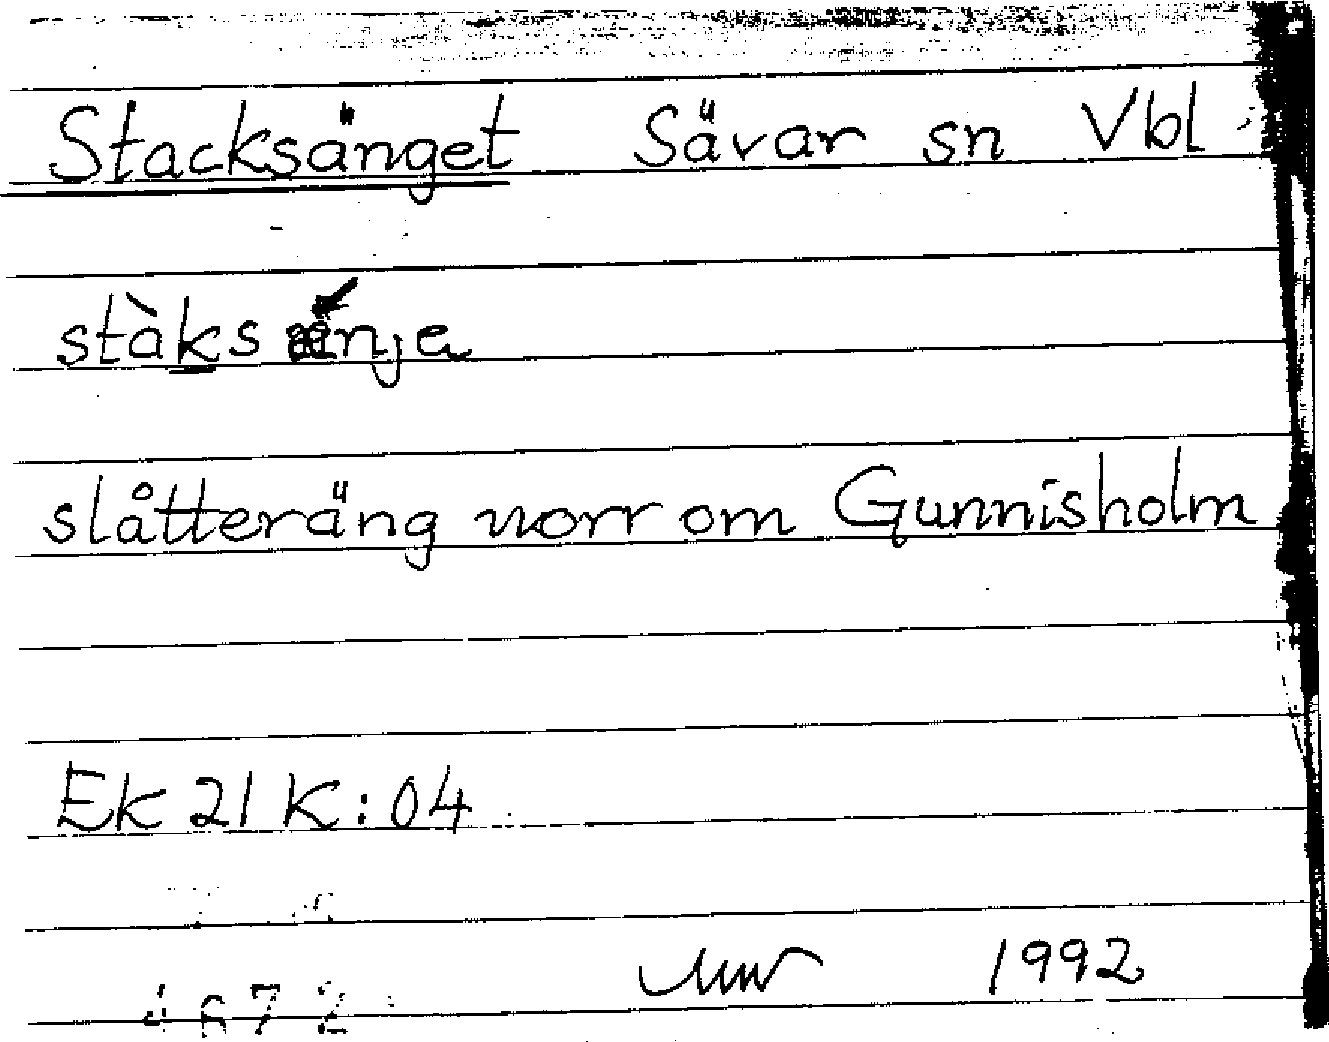 Stacksänget Sävar sn Vbl
stàksænja
slåtteräng norr om Gunnisholm
Ek 21 K:04
1992
4672